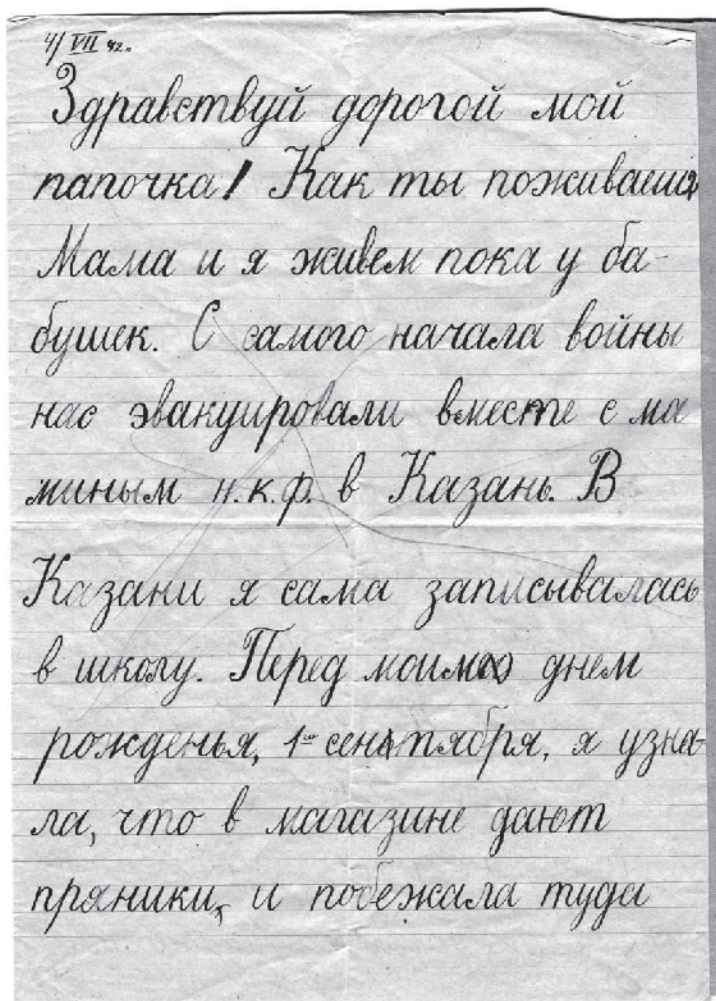 4/VII 42г.
Здравствуй дорогой мой
папочка! Как ты поживаешь
Мама и я живем пока у ба-
бушек. С самого начала войны
нас эвакуировали вместе с ма
миным н.к.ф. в Казань. В
Казани я сама записывалась
в школу. Перед моим днем
рожденья, 1го сентября, я узна-
ла, что в магазине дают
пряники, и побежала туда